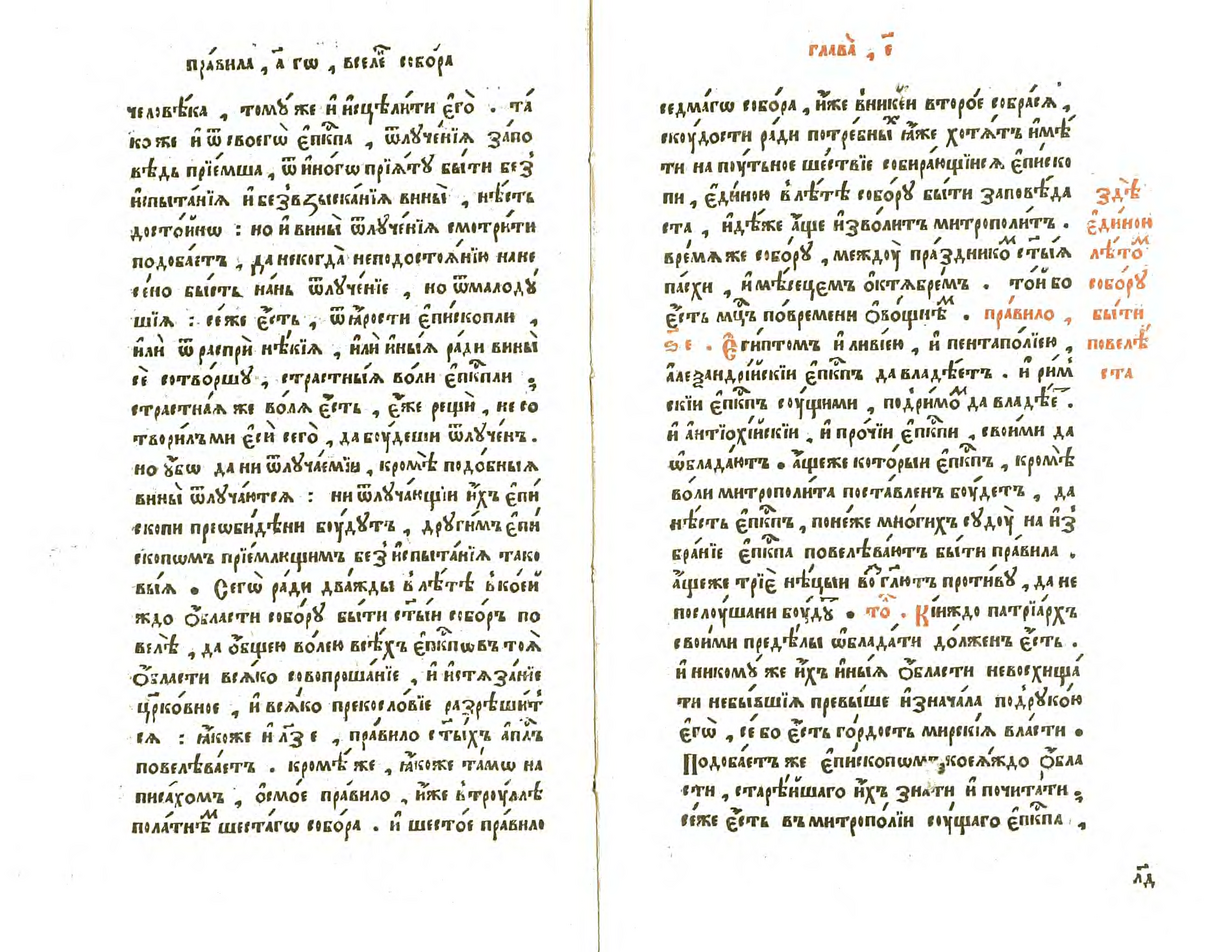 пра́вила , а҃ гѡ , вселе́ⷩ собо́ра
человѣ́ка , тому́же и҆ и҆сцѣли́ти є҆го̀ . та́
коже и҆ ѿ своегѡ̀ є҆пⷭ҇кпа , ѿлуче́нїѧ запо
вѣдь прїе́мша , ѿ и҆но́гѡ прїѧ́ту бы́ти беꙁ̾
и҆спыта́нїѧ и҆ беꙁвꙁыска́нїѧ вины̀ , нѣ́сть
досто́йнѡ : но и҆ вины̀ ѿлуче́нїѧ смотри́ти
подоба́етъ , да некогда̀ неподостоѧ́нїю нане
сено̀ бы́сть нань ѿлуче́нїе , но ѿмалоду́
шїѧ : се́же є҆́сть , ѿ ꙗ҆́рости є҆пи́скопли ,
и҆лѝ ѿ ра́спри нѣ́кїѧ , и҆лѝ и҆ны́ѧ ради вины̀
сѐ сотво́ршу , стра́стныѧ во́ли є҆пⷭ҇кпли ;
стра́стнаѧ же во́лѧ є҆́сть , є҆́же рещѝ , не со
твори́лъ ми є҆сѝ сего̀ , да бꙋ́деши ѿлуче́нъ .
но ᲂу҆́бѡ да ни ѿлуча́емїи , кромѣ̀ подо́бныѧ
вины̀ ѿлуча́ютсѧ : ни ѿлуча́ющїи и҆́хъ є҆пи́
скопи преѡби́дѣни бꙋ́дутъ , други́мъ є҆пи́
скопѡмъ прїе́млющимъ беꙁ̾ и҆спыта́нїѧ тако
вы́ѧ . Сегѡ̀ ра́ди два́жды в̾ лѣ́тѣ в̾ ко́ей
ждо ѻ҆́бласти собо́ру бы́ти ст҃ы́и собо́ръ по
велѣ̀ , да ѻ҆́бщею во́лею всѣ́хъ є҆пⷭ҇кпѡвъ тоѧ̀
ѻ҆́бласти всѧ́ко совопроша́нїе , и҆ и҆стѧꙁа́нїе
цр҃ко́вное , и҆ всѧ́ко прекосло́вїе раꙁрѣши́т
сѧ : ꙗ҆́коже и҆ л҃ꙁ е , пра́вило ст҃ы́хъ а҆пⷭ҇лъ
повелѣва́етъ . кромѣ́ же , ꙗ҆́коже та́мѡ на
писа́хомъ , ѻ҆смо́е пра́вило , и҆́же в̾ трꙋ́ллѣ
пола́тнѣⷨ шеста́гѡ собо́ра . и҆ шесто́е пра́вило
глава̀ , е҃
седма́гѡ собо́ра , и҆́же в̾ нике́и второ́е собра́сѧ ,
скꙋ́дости ра́ди потре́бныⷯ ꙗ҆́же хотѧ́тъ и҆мѣ́
ти на пꙋ́тьное ше́ствїе собира́ющїисѧ є҆пи́ско
пи , є҆ди́ною в̾ лѣ́тѣ собо́ру бы́ти запове́да
ста , и҆дѣ́же а҆́ще и҆ꙁво́литъ митрополи́тъ .
вре́мѧже собо́ру , междꙋ̀ пра́ꙁдникоⷨ ст҃ы́ѧ
па́схи , и҆ мѣ́сѧцемъ ѻ҆ктѧ́бремъ . то́й бо
є҆́сть мц҃ъ повремени ѻ҆во́щнѣⷨ . пра́вило ,
ѕ҃ е . Є҆ги́птомъ и҆ ливі́ею , и҆ пентапо́лїею ,
а҆леꙁандрі́йскїи є҆пⷭ҇кпъ да владѣ́етъ . и҆ ри́м
скїи є҆пⷭ҇кпъ сꙋ́щими , под̾ ри́моⷨ да владѣ́еⷮ .
и҆ а҆нтїохі́йскїи , и҆ про́чїи є҆пⷭ҇кпи , свои́ми да
ѡ҆блада́ютъ . а҆́щеже кото́рыи є҆пⷭ҇кпъ , кромѣ̀
во́ли митрополи́та поста́вленъ бꙋ́детъ , да
нѣ́сть є҆пⷭ҇кпъ , поне́же мно́гихъ судꙋ̀ на и҆ꙁ̾
бра́нїе є҆пⷭ҇кпа повелѣва́ютъ бы́ти пра́вила .
а҆́щеже трїѐ нѣ́цыи воꙁгл҃ютъ проти́ву , да не
послꙋ́шани бꙋ́дуⷮ . то́ⷧ . Кі́иждо патрїа́рхъ
свои́ми предѣ́лы ѡ҆блада́ти до́лженъ є҆́сть .
и҆ никому́ же и҆́хъ и҆ны́ѧ ѻ҆́бласти невосхища́
ти небы́вшїѧ превы́ше и҆ꙁнача́ла под̾ руко́ю
є҆гѡ̀ , се́ бо є҆́сть го́рдость мирскі́ѧ вла́сти .
Подоба́етъ же є҆пи́скопѡмъ коеѧ́ждо ѻ҆́бла
сти , старѣ́йшаго и҆́хъ ꙁна́ти и҆ почита́ти ;
се́же є҆́сть въ митропо́лїи сꙋ́щаго є҆пⷭ҇кпа ,
ꙁдѣ̀
є҆ди́ною
лѣ́тоⷨ
собо́ру
бы́ти
повелѣ̀
ста
л҃д